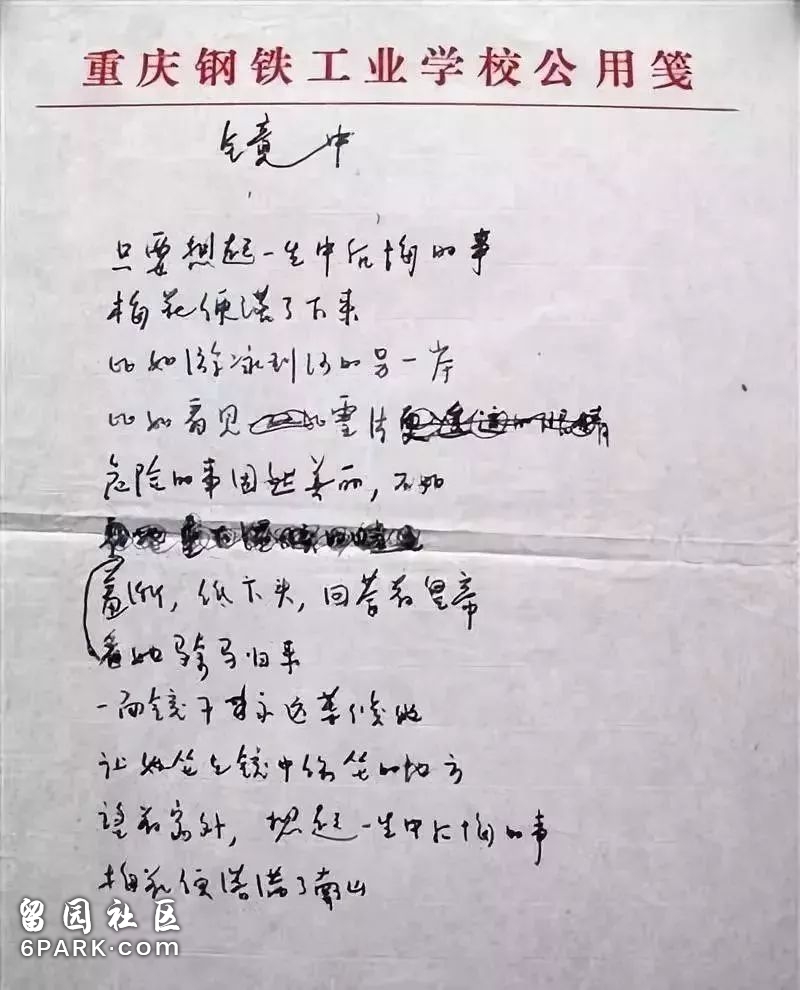 重庆钢铁工业学校公用笺
镜中
只要想起一生中后悔的事
梅花便落了下来
比如游泳到河的另一岸
比如看见雪片
危险的事固然美丽，不如
羞惭，低下头，回答着皇帝
看她骑马归来
一面镜子永远等候她
让她坐在镜中你坐的地方
望着窗外，想起一生中后悔的事
梅花便落满了南山
留园社区
6PARK.com